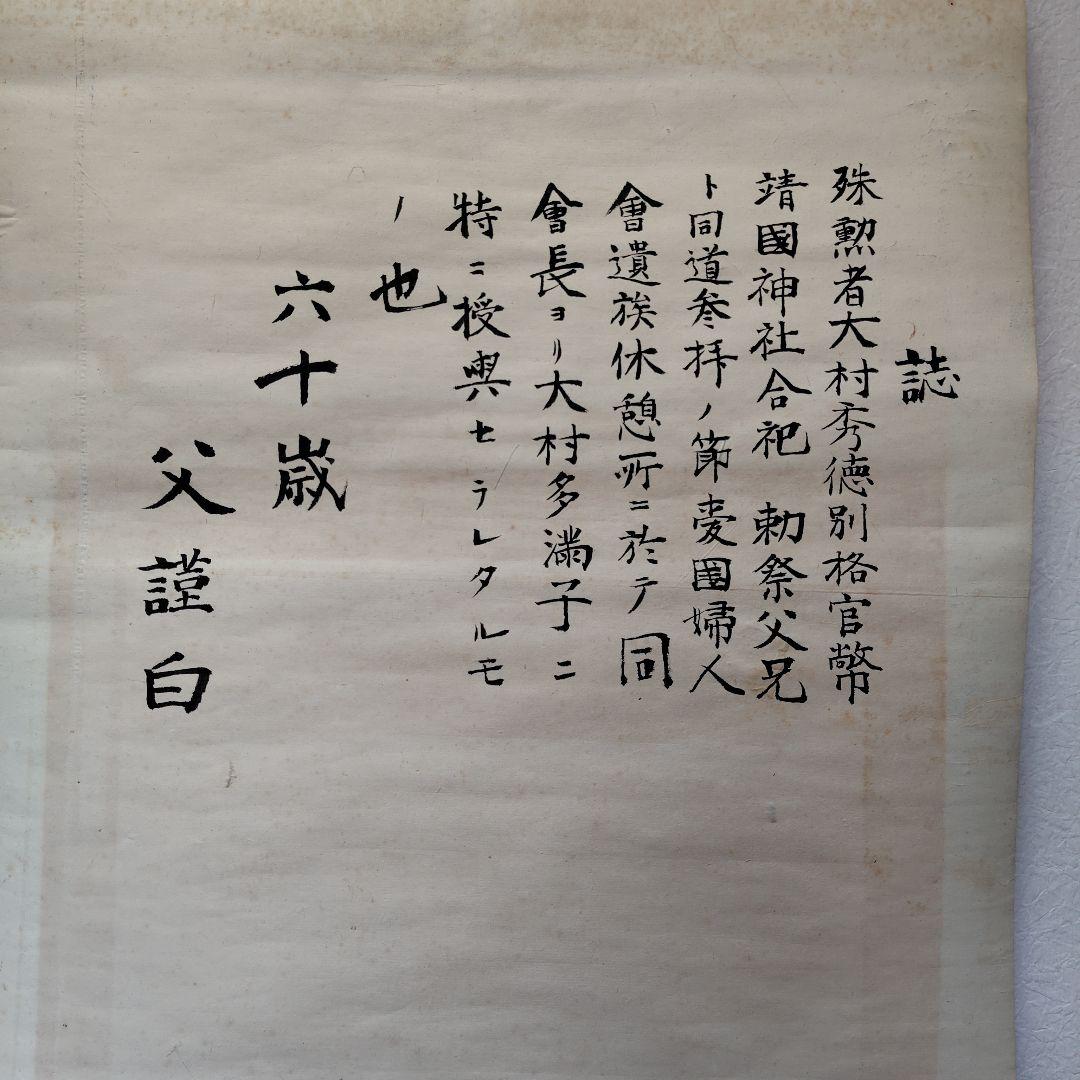 誌
殊勲者大村秀徳別格官幣
靖國神社合祀 勅祭父兄
ト同道参拝ノ節愛國婦人
會遺族休憩所ニ於テ同
會長ヨリ大村多満子ニ
特ニ授與セラレタルモ
ノ也
六十歳
父謹白